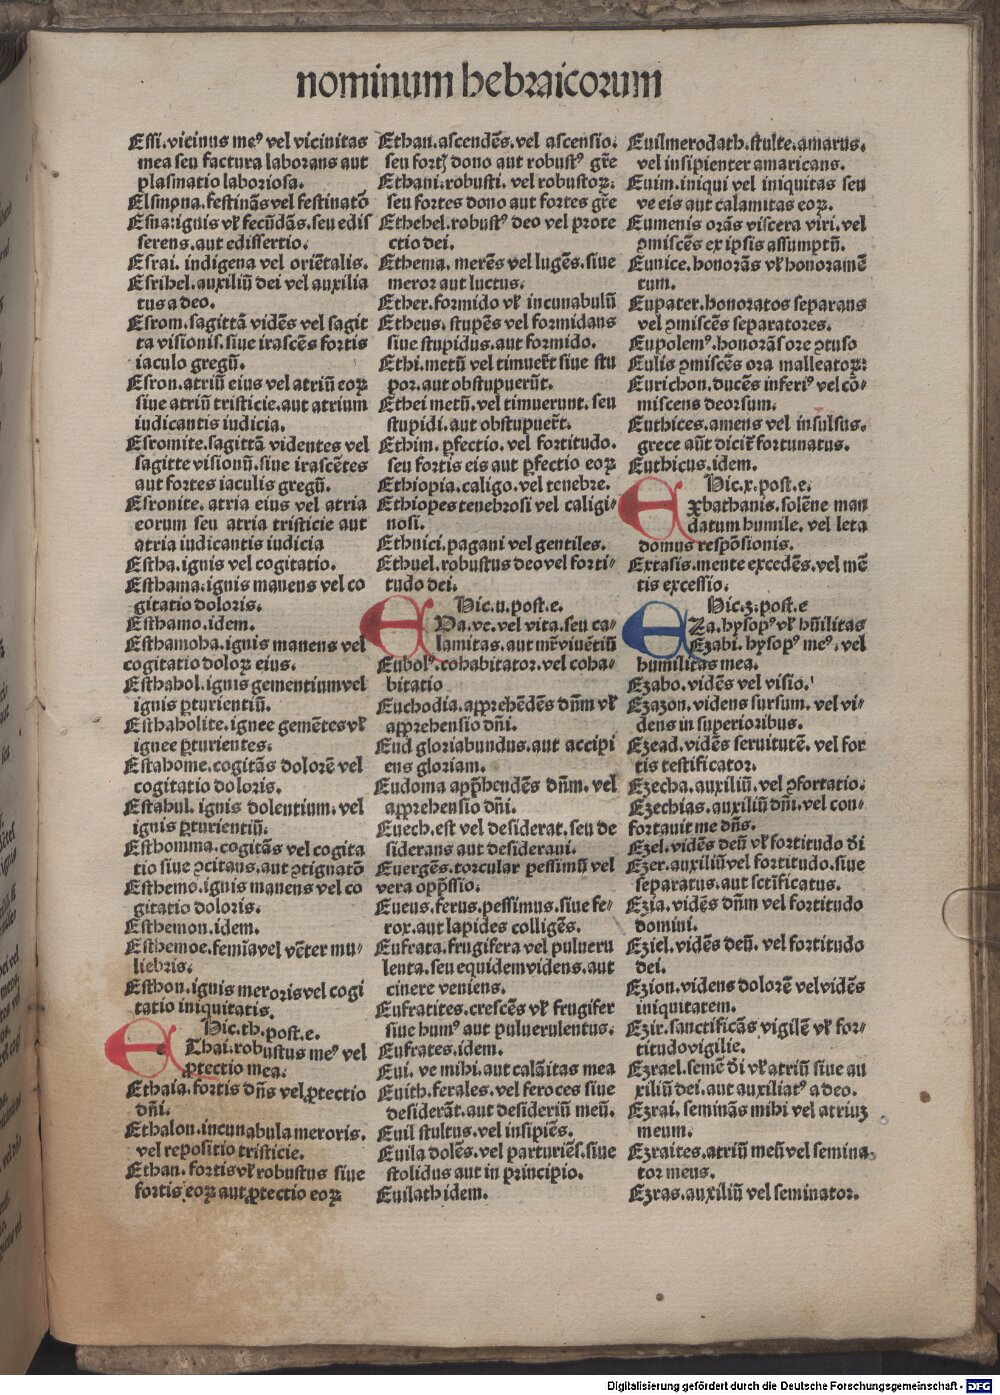 nominum hebraicorum
Essi.vicinus meꝰ vel vicinitas
mea seu factura laborans aut
plasmatio laboriosa.
Elsmona.festinãs vel festinatõ
Esna:ignis vꝉ fecũdãs.seu edis
serens.aut edissertio.
Esrai. indigena vel oriẽtalis.
Esrihel.auxiliũ dei vel auxilia
tus a deo.
Esrom.sagittã vidẽs vel sagit
ta visionis.siue irascẽs fortis
iaculo gregũ.
Esron.atriũ eius vel atriũ eoꝝ
siue atriũ tristicie.aut atrium
iudicantis iudicia.
Esromite.sagittã videntes vel
sagitte visionũ.siue irascẽtes
aut fortes iaculis gregũ.
Esronite. atria eius vel atria
eorum seu atria tristicie aut
atria iudicantis iudicia
Estha.ignis vel cogitatio.
Esthama.ignis manens vel co
gitatio doloris.
Esthamo.idem.
Esthamoha.ignis manens vel
cogitatio doloꝝ eius.
Esthahol.ignis gementium vel
ignis ꝑturientiũ.
Esthaholite.ignee gemẽtes vꝉ
ignee ꝑturientes.
Estahome.cogitãs dolorẽ vel
cogitatio doloris.
Estahul. ignis dolentium. vel
ignis ꝑturientiũ.
Esthomma.cogitãs vel cogita
tio siue ꝯcitans.aut ꝯtignatõ
Esthemo.ignis manens vel co
gitatio doloris.
Esthemon.idem.
Esthemoe.femĩa vel vẽter mu⸗
liebris.
Esthon.ignis meroris vel cogi
tatio iniquitatis.
Hic.th.post.e.
EThai.robustus meꝰ vel
ꝓtectio mea.
Ethaia.fortis dñs vel ꝓtectio
dñi.
Ethalon.incunabula meroris.
vel repositio tristicie.
Ethan. fortis vꝉ robustus siue
fortis eoꝝ aut ꝓtectio eoꝝ
Ethan.ascendẽs.vel ascensio.
seu forth dono aut robustꝰ gr̃e
Ethani.robusti. vel robustoꝝ.
seu fortes dono aut fortes gr̃e
Ethehel.robustꝰ deo vel prote
ctio dei.
Ethema. merẽs vel lugẽs.siue
meror aut luctus.
Ether.formido vꝉ incunabulũ
Etheus. stupẽs vel formidans
siue stupidus.aut formido.
Ethi.metũ vel timuer̃t siue stu
por.aut obstupuerũt.
Ethei metũ.vel timuerunt. seu
stupidi.aut obstupuer̃t.
Ethim. ꝓfectio.vel fortitudo.
seu fortis eis aut ꝓfectio eoꝝ
Ethiopia.caligo.vel tenebre.
Ethiopes tenebrosi vel caligi⸗
nosi.
Ethnici.pagani vel gentiles.
Ethuel.robustus deo vel forti⸗
tudo dei.
Hic.u.post.e.
EVa.ve.vel vita.seu ca⸗
lamitas.aut mr̃ viuẽtiũ
Eubolꝰ.cohabitator.vel coha⸗
bitatio
Euchodia.apprehẽdẽs dñm vꝉ
apprehensio dñi.
Eud gloriabundus.aut accipi
ens gloriam.
Eudoma apꝓhendẽs dñm. vel
apprehensio dñi.
Euech.est vel desiderat.seu de
siderans aut desideraui.
Euergẽs.torcular pessimũ vel
vera opp̃ssio.
Eueus.ferus.pessimus.siue fe⸗
rox.aut lapides colligẽs.
Eufrata.frugifera vel pulueru
lenta.seu equidem videns.aut
cinere veniens.
Eufratites.crescẽs vꝉ frugifer
siue humꝰ aut puluerulentus.
Eufrates.idem.
Eui. ve mihi.aut calãitas mea
Euith.ferales.vel feroces siue
desiderãt.aut desideriũ meũ.
Euil stultus.vel insipiẽs.
Euila dolẽs.vel parturiẽs.siue
stolidus aut in principio.
Euilath idem.
Euilmerodath.stulte.amarus.
vel insipienter amaricans.
Euim.iniqui vel iniquitas seu
ve eis aut calamitas eoꝝ.
Eumenis orãs viscera viri.vel
ꝯmiscẽs ex ipsis assumptũ.
Eunice.honorãs vꝉ honoramẽ
tum.
Eupater.honoratos separans
vel ꝯmiscẽs separatores.
Eupolemꝰ.honorãs ore ꝯtuso
Eulis ꝯmiscẽs ora malleatoꝝ:
Eurichon.ducẽs inferiꝰ vel cõ⸗
miscens deorsum.
Euthices.amens vel insulsus.
grece aũt dicit̃ fortunatus.
Euthicus.idem.
Hic.x.post.e.
Exbathanis.solẽne man
datum humile. vel leta
domus respõsionis.
Extasis.mente excedẽs.vel mẽ
tis excessio.
Hic.ʒ.post.e
EZa.hysopꝰ vꝉ hũilitas
Ezabi.hysopꝰ meꝰ. vel
humilitas mea.
Ezabo.vidẽs vel visio.
Ezazon.videns sursum. vel vi⸗
dens in superioribus.
Ezead.vidẽs seruitutẽ. vel for
tis testificator.
Ezecha.auxiliũ.vel ꝯfortatio.
Ezechias.auxiliũ dñi.vel con⸗
fortauit me dñs.
Ezel.vidẽs deũ vꝉ fortitudo di
Ezer.auxiliũ vel fortitudo.siue
separatus.aut sctĩficatus.
Ezia.vidẽs dñm vel fortitudo
domini.
Eziel.vidẽs deũ. vel fortitudo
dei.
Ezion.videns dolorẽ vel vidẽs
iniquitatem.
Ezir.sanctificãs vigilẽ vꝉ for⸗
titudo vigilie.
Ezrael.semẽ di vꝉ atriũ siue au
xiliũ dei.aut auxiliatꝰ a deo.
Ezrai. seminãs mihi vel atriuʒ
meum.
Ezraites.atriũ meũ vel semina⸗
tor meus.
Ezras.auxiliũ vel seminator.
Digitalisierung gefördert durch die Deutsche Forschungsgemeinschaft - DFG